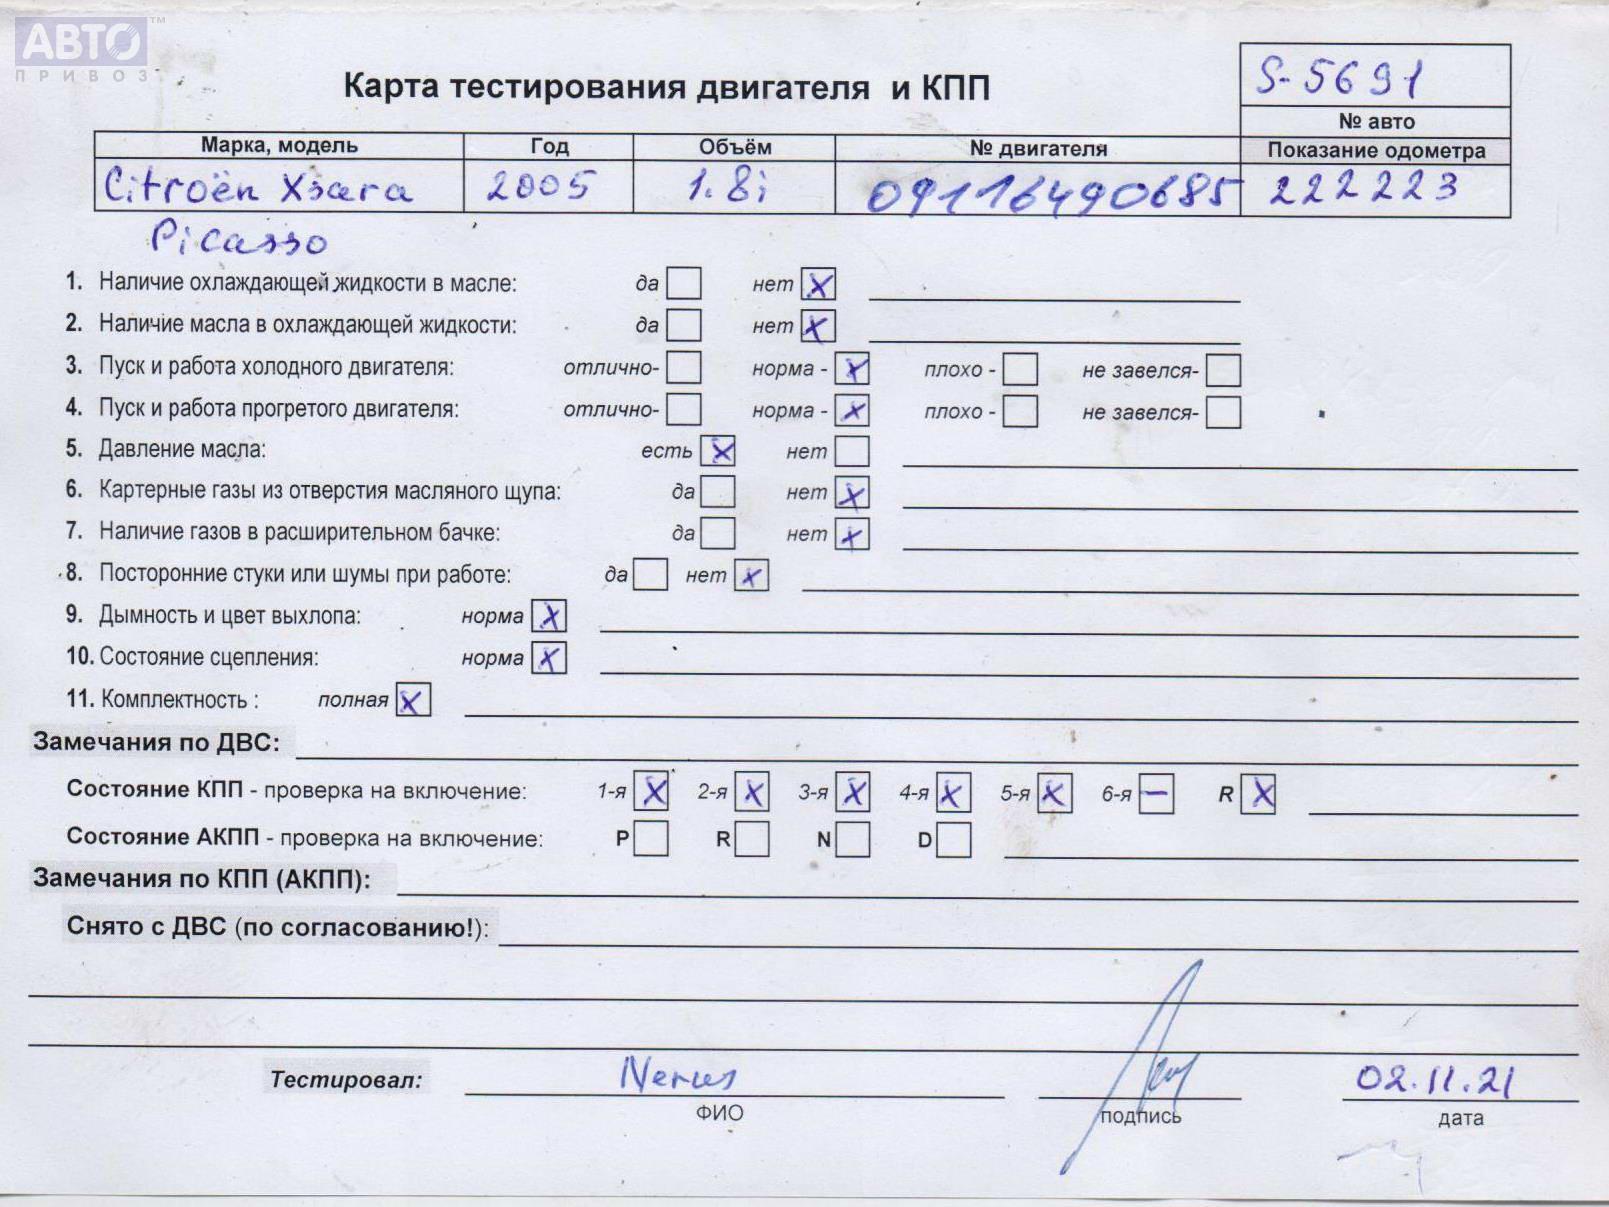 АВТО™
ПРИВОЗ
Карта тестирования двигателя и КПП
S-5691
№ авто
Марка, модель Год Объём № двигателя Показание одометра
Citroën Xsara 2005 1.8i 09116490685 222223
Picasso
1. Наличие охлаждающей жидкости в масле: да нет X
2. Наличие масла в охлаждающей жидкости: да нет X
3. Пуск и работа холодного двигателя: отлично- норма - X плохо - не завелся-
4. Пуск и работа прогретого двигателя: отлично- норма - X плохо - не завелся-
5. Давление масла: есть X нет
6. Картерные газы из отверстия масляного щупа: да нет X
7. Наличие газов в расширительном бачке: да нет X
8. Посторонние стуки или шумы при работе: да нет X
9. Дымность и цвет выхлопа: норма X
10. Состояние сцепления: норма X
11. Комплектность : полная X
Замечания по ДВС:
Состояние КПП - проверка на включение: 1-я X 2-я X 3-я X 4-я X 5-я X 6-я — R X
Состояние АКПП - проверка на включение: P R N D
Замечания по КПП (АКПП):
Снято с ДВС (по согласованию!):
Тестировал: 02.11.21
ФИО подпись дата